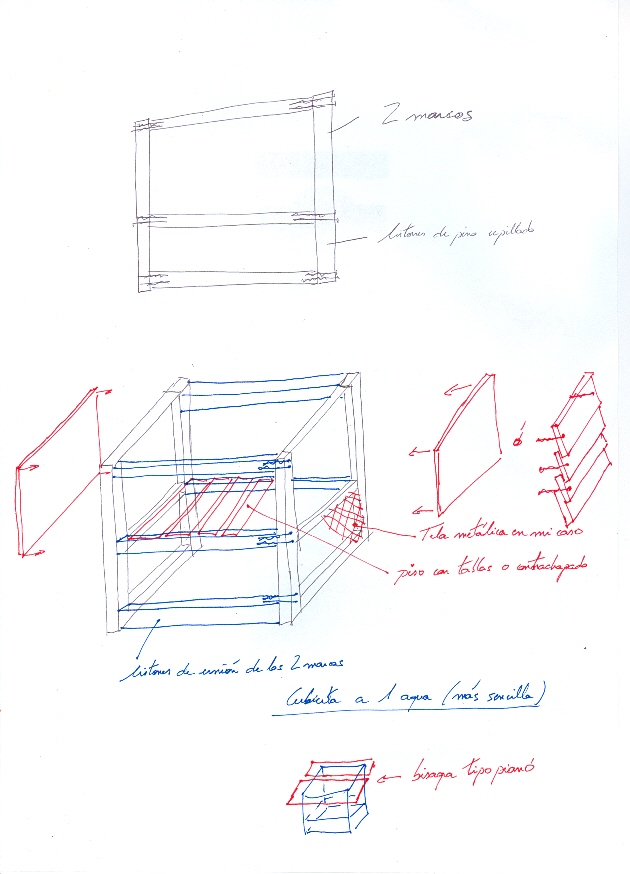 2 marcos
listones de pino cepillado
ó
Tela metálica en mi caso
piso con tablas o contrachapado
listones de unión de los 2 marcos
Cubierta a 1 agua (más sencilla)
bisagra tipo piano